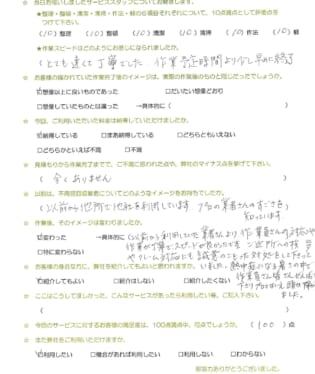 当日お伺いしましたサービススタッフについてお聞きします。
★整理・整頓・清潔・清掃・作法・躾の6項目それぞれについて、10点満点として評価点を
つけて下さい。
(10)整理 (10)整頓 (10)清潔 (10)清掃 (10)作法 (10)躾
★作業スピードはどのようにお感じになられましたか。
(とても速くて丁寧でした。作業予定時間より少し早めに終了
お客様の描かれていた作業完了後のイメージは、実際の作業後のものと同じだったでしょうか。
☑想像以上に良いものであった □だいたい想像どおり
□想像していたものとは違った →具体的に( )
今回、ご利用いただいた料金は納得していただけましたか。
☑納得している □まあ納得している □どちらともいえない
□どちらかといえば不満 □不満
見積もりから作業完了までで、ご不満に思われた点や、弊社のマイナス点を挙げて下さい。
( 全くありません )
以前は、不用品回収業者についてどのようなイメージをお持ちでしたか。
(以前から他所で他社を利用しています。プロの業者さんのすごさを
知っています。
作業後、そのイメージは変わりましたか。
☑変わった →具体的に(以前から利用していた業者さんより作業員さんの対応や
□特に変わらない
作業が丁寧でスピードが
お客様の身近な方に、弊社を紹介してもよいと思われますか。
☑紹介してもよい □紹介はしない □紹介したくない
ここはこうしてほしかった、こんなサービスがあったら利用したい等、ご記入下さい。
ました。
( )
今回のサービスに対するお客様の満足度は、100点満点中、何点でしょうか。 (100)点
また弊社をご利用いただけますか。
☑利用したい □機会があれば利用したい □利用しない □わからない
御協力ありがとうございました。